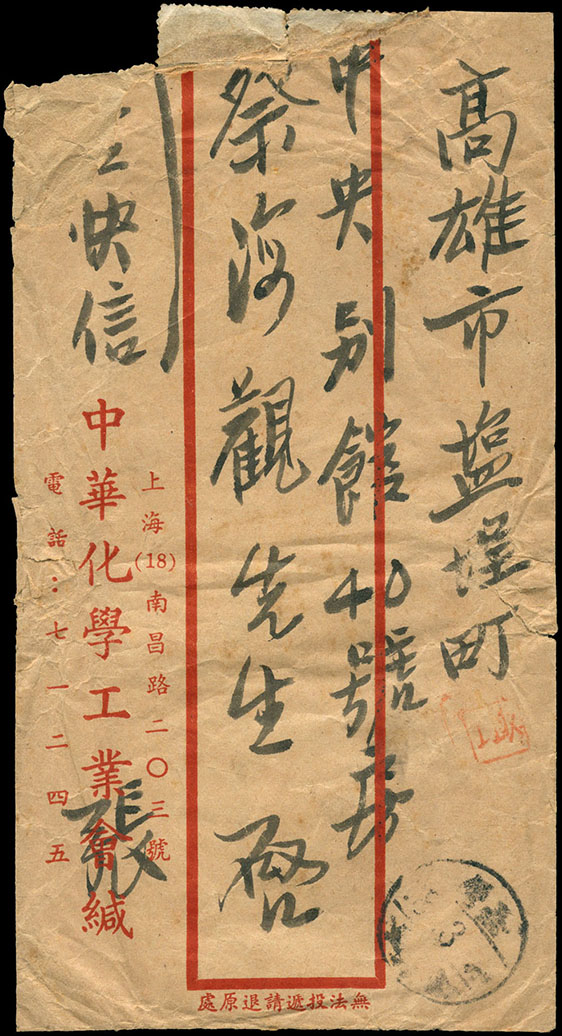 高雄市塩埕町
中央別館40號房
蔡海觀先生啓
快信
上海(18)南昌路二〇三號
中華化學工業會緘
張
電話：七一二四五
無法投遞請退原處